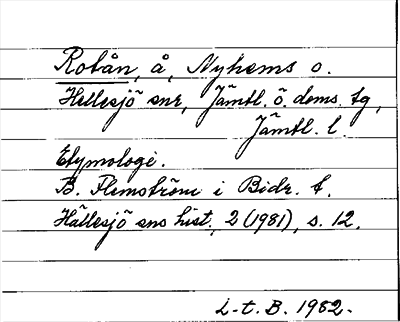 Rotån, å, Nyhems o.
Hellesjö snr, Jämtl. ö. doms. tg,
Jämtl. l.
Etymologi.
B. Flemström i Bidr. t.
Hällesjö sns hist., 2 (1981), s. 12.
L-t. B. 1982.